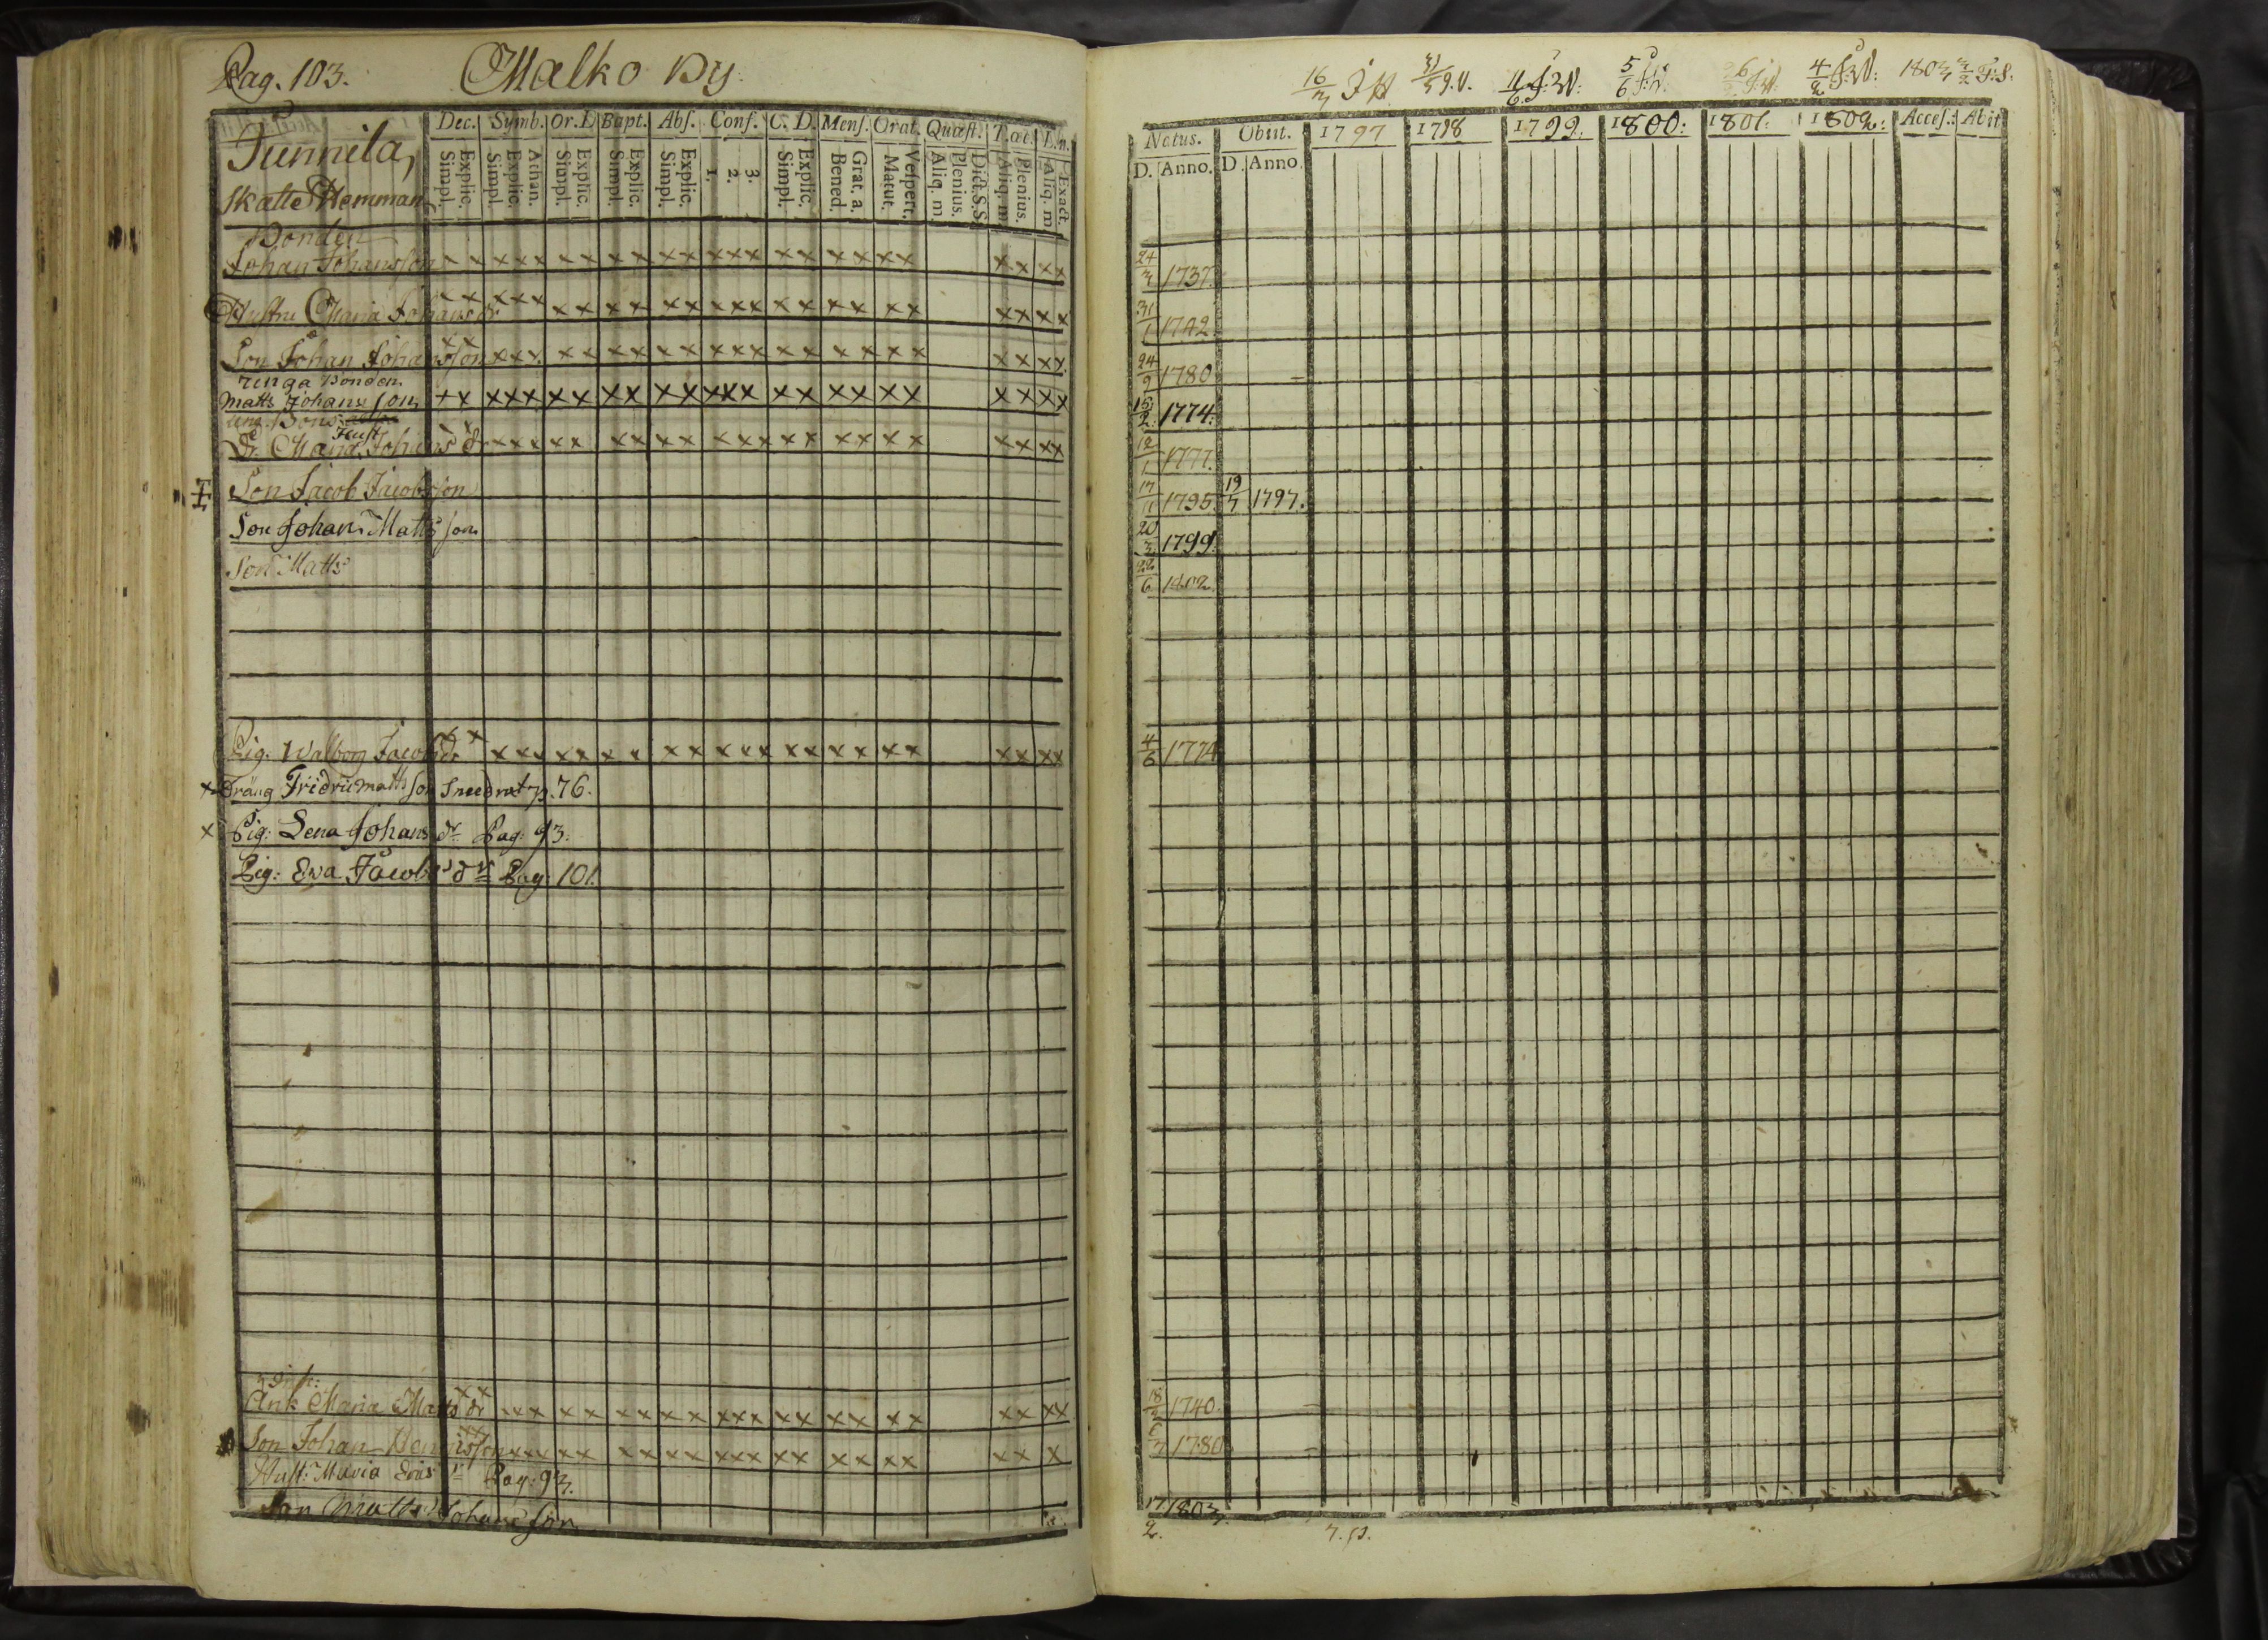 Pag. 103. Malko By
Dec. Symb. Or. D Bapt. Abs. Conf. C. D. Mens. Orat. Quæst. T. œc. L. n.
Simpl. Explic. Simpl. Explic. Athan. Simpl. Explic. Simpl. Explic. Simpl. Explic. 1. 2. 3. Simpl. Explic. Bened. Grat. a. Matut. Vespert. Aliq. m Plenius. Dict. S. S Aliq. m. Plenius. Aliq. m Exact.
Junnila,
Skatte Hemman
Bonden
Johan Johansson x x x x x x x x x x x x x x x x x x x x x x x x
Hustru Maria Johans dr x x x x x x x x x x x x x x x x x x x x x x x x
Son Johan Johansson x x x x x x x x x x x x x x x x x x x x x x x x
unga Bonden
Matts Johansson x x x x x x x x x x x x x x x x x x x x x x x x
ung. Bond
Hust
Dr. Maria Johans dr x x x x x x x x x x x x x x x x x x x x x x x x
Son Jacob Jacobsson
Son Johan Mattsson
Son Matts
Pig. Walborg Jacobs dr x x x x x x x x x x x x x x x x x x x x x x x x
x Dräng Fridric Mattsson p. 76.
x Pig: Lena Johans dr Pag: 93.
Pig: Ewa Jacobs dr Pag: 101.
Enk Maria Matts dr x x x x x x x x x x x x x x x x x x x x x x x x
Son Johan x x x x x x x x x x x x x x x x x x x x x
Hust: Maria Eriks dr Pag: 93.
Son Matts Johansson
16/3 31/3 J. V. 11/6 5/6 4/2 1803 3/2 F: S.
Natus. Obiit. 1797 1798 1799. 1800: 1801. 1802: Acces.: Abit
D. Anno. D. Anno.
24/3 1737.
31/1 1742.
24/9 1780
15/2 1774.
12/1 1777.
17/11 1795. 19/7 1797.
20/3 1799.
22/6 1802.
4/6 1774
18/2 1740.
6/7 1780
17/2. 1803.